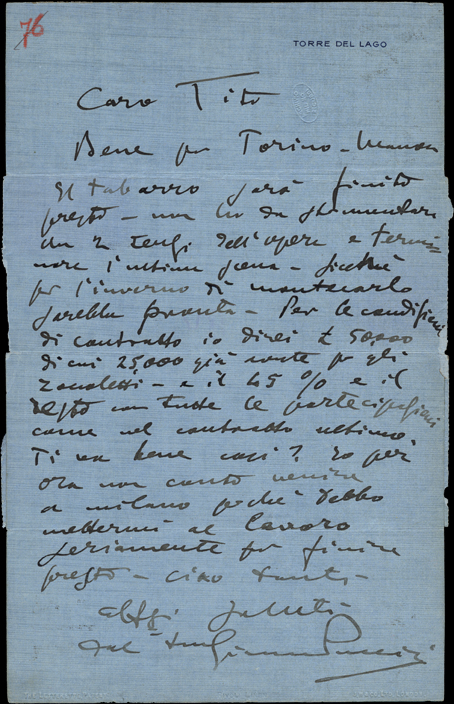 76
TORRE DEL LAGO
Caro Tito
Bene per Torino - Manon
Il tabarro sarà finito
presto - non ho da strumentare
che 2 terzi dell'opera e termi=
nare l'ultima scena - sicchè
per l'inverno di montecarlo
sarebbe pronta - Per le condizioni
di contratto io direi £ 50,000
di cui 25,000 già avute per gli
zoccoletti - e il 45 % e il
resto con tutte le partecipazioni
come nel contratto ultimo.
Ti va bene così? Io per
ora non conto venire
a milano perchè debbo
mettermi al lavoro
seriamente per finire
presto - ciao tanti
aff. saluti
dal tuo Giacomo Puccini